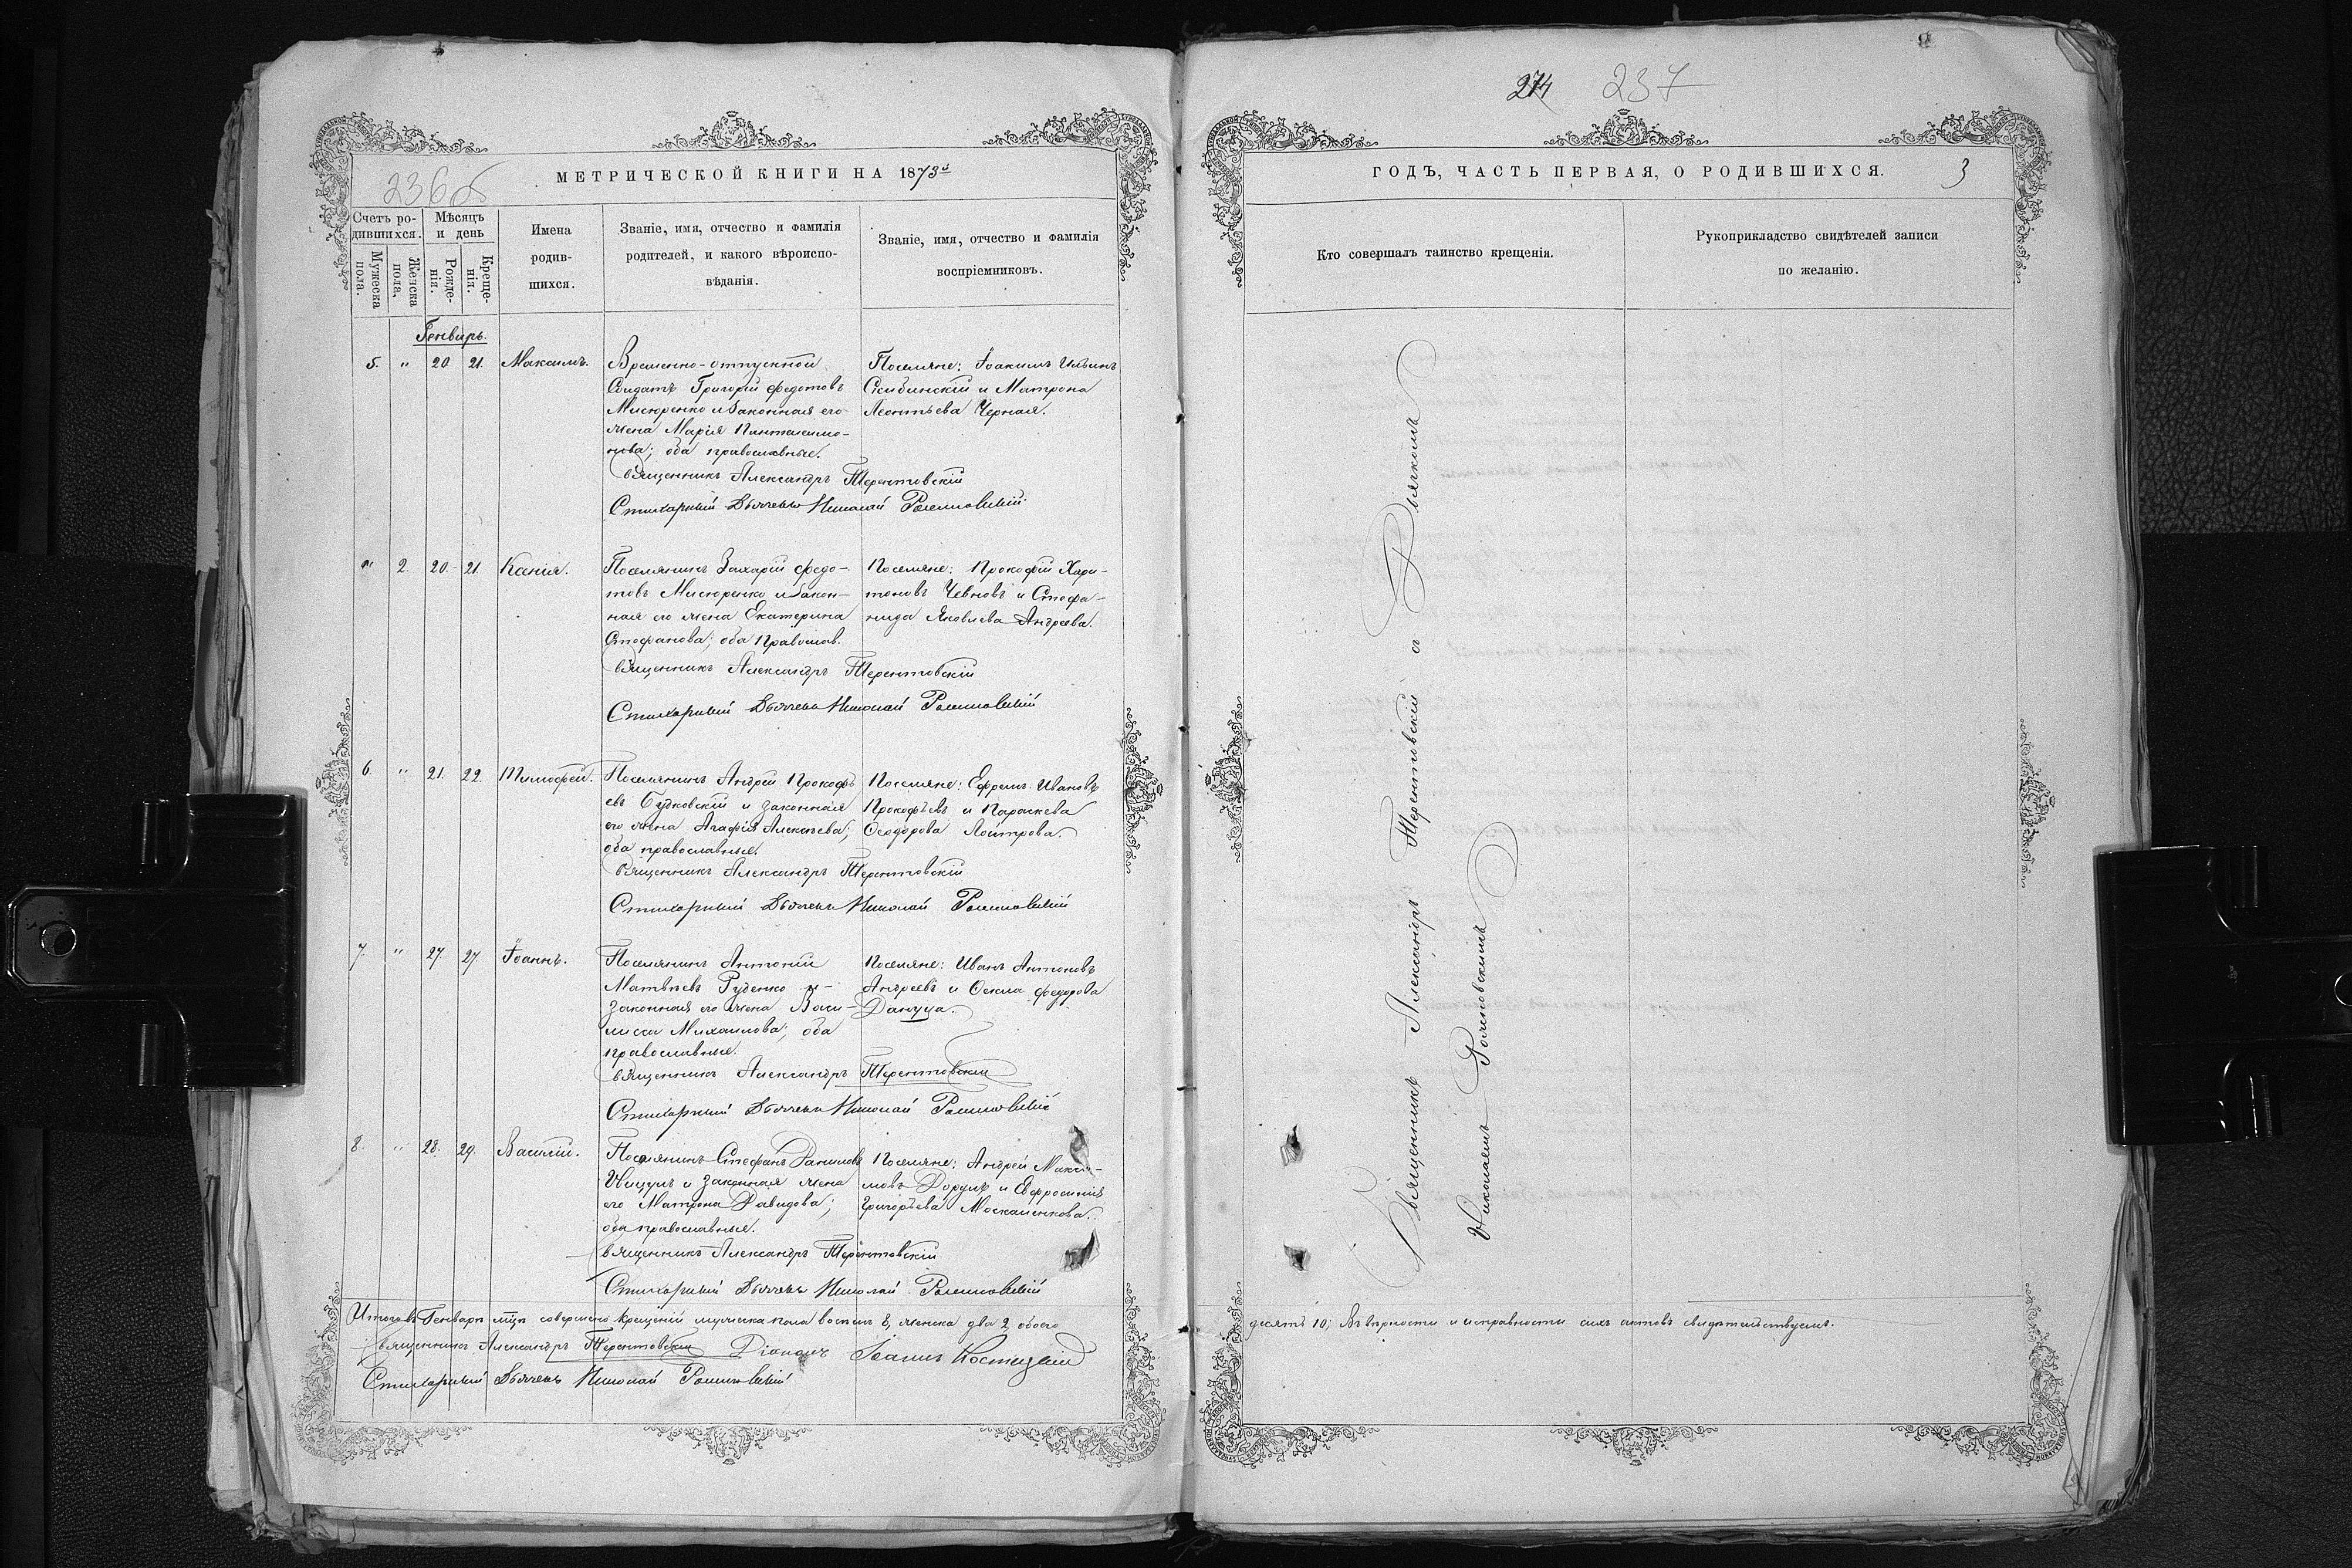 236 б
МЕТРИЧЕСКОЙ КНИГИ НА 1873й
Счетъ ро-
дившихся.
Мужеска
пола.
Женска
пола.
Мѣсяцъ
и день
Рожде-
нія.
Креще-
нія.
Имена
родив-
шихся.
Званіе, имя, отчество и фамилія
родителей, и какого вѣроиспо-
вѣданія.
Званіе, имя, отчество и фамилія
воспріемниковъ.
Генварь.
5. " 20 21. Максимъ.
Временно-отпускной
Солдатъ Григорій Федотовъ
Мисюренко и законная его
жена Марія Пантелимо-
нова; оба православные.
Поселяне: Іоакимъ Ильинъ
Скибинскій и Матрона
Леонтьева Черная.
Священникъ Александръ Терентовскій
Стихарный Дьячекъ Николай
" 2. 20. 21. Ксенія.
Поселянинъ Захарій Федо-
товъ Мисюренко и закон-
ная его жена Екатерина
Стефанова; оба православ.
Поселяне: Прокофій Хари-
тоновъ и Стефа-
нида Яковлева Андреева.
Священникъ Александръ Терентовскій
Стихарный Дьячекъ Николай
6. " 21. 22. Тимофей.
Поселянинъ Андрей Прокофь-
евъ Будковскій и законная
его жена Агафія Алексѣева;
оба православные.
Поселяне: Ефремъ Ивановъ
Прокофьевъ и Параскева
Ѳеодорова
Священникъ Александръ Терентовскій
Стихарный Дьячекъ Николай
7. " 27. 27. Іоаннъ.
Поселянинъ Антоній
Матвѣевъ Руденко и
законная его жена Васи-
лисса Михаилова; оба
православные.
Поселяне: Иванъ Антоновъ
Андреевъ и Ѳекла Федорова
Дануца.
Священникъ Александръ Терентовскій
Стихарный Дьячекъ Николай
8. " 28. 29. Василій.
Поселянинъ Стефанъ Даниловъ
и законная жена
его Матрона Давидова;
оба православные.
Поселяне: Андрей Макси-
мовъ и Ефросинія
Григорьева Москаленкова.
Священникъ Александръ Терентовскій
Стихарный Дьячекъ Николай
Итого въ Генварѣ мцѣ совершено крещеній мужеска пола восемь 8, женска два 2, обоего
Священникъ Александръ Терентовскій Діаконъ Іоаннъ Костецкій
Стихарный Дьячекъ Николай
274 237
ГОДЪ, ЧАСТЬ ПЕРВАЯ, О РОДИВШИХСЯ.
3
Кто совершалъ таинство крещенія.
Рукоприкладство свидѣтелей записи
по желанію.
Священникъ Александръ Терентовскій съ Дьячкомъ
Николаемъ
десять 10; Въ вѣрности и исправности сихъ актовъ свидѣтельствуемъ.